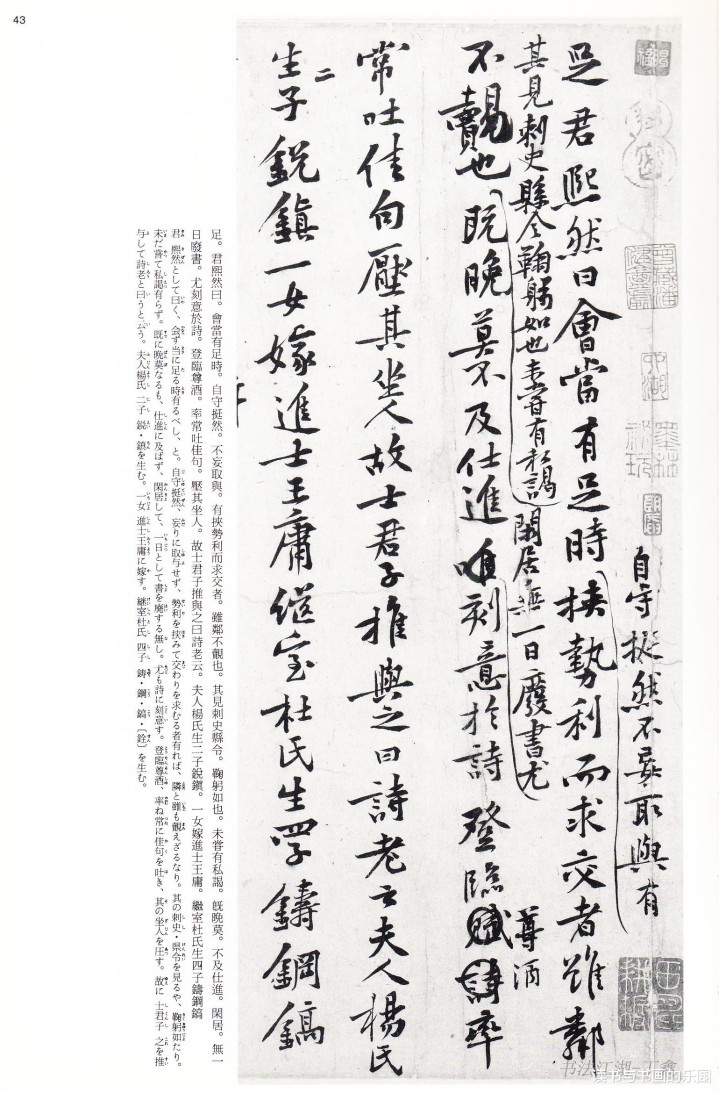 43
足君熙然曰會當有足時挾勢利而求交者雖鄰
自守挺然不妄取與有
不覿也旣晚莫不及仕進唯刻意於詩登臨賦詩率
其見刺史縣令鞠躬如也未嘗有私謁閑居無一日廢書尤
尊酒
常吐佳句壓其坐人故士君子推與之曰詩老云夫人楊氏
生二子銳鎮一女嫁進士王庸繼室杜氏生四子鑄鋼鎬
足。君熙然曰。會當有足時。自守挺然。不妄取與。有挾勢利而求交者。雖鄰不覿也。其見刺史縣令。鞠躬如也。未嘗有私謁。旣晩莫。不及仕進。閑居。無一
日廢書。尤刻意於詩。登臨尊酒。率常吐佳句。壓其坐人。故士君子推與之曰詩老云。夫人楊氏生二子銳鎭。一女嫁進士王庸。繼室杜氏生四子鑄鋼鎬
君 熙然として曰く、会ず当に足る時有るべし、と。自守挺然、妄りに取与せず、勢利を挟みて交わりを求むる者有れば、隣と雖も覿えざるなり。其の刺史・県令を見るや、鞠躬如たり。
未だ嘗て私謁有らず。既に晩莫なるも、仕進に及ばず、閑居して、一日として書を廃する無し。尤も詩に刻意す。登臨尊酒、率ね常に佳句を吐き、其の坐人を圧す。故に 士君子 之を推
与して詩老と曰うと云う。夫人楊氏 二子 鋭・鎮を生む。一女 進士王庸に嫁す。継室杜氏 四子 鋳・鋼・鎬・〔銓〕を生む。
书法江湖-丁鑫
读书与书画的乐园